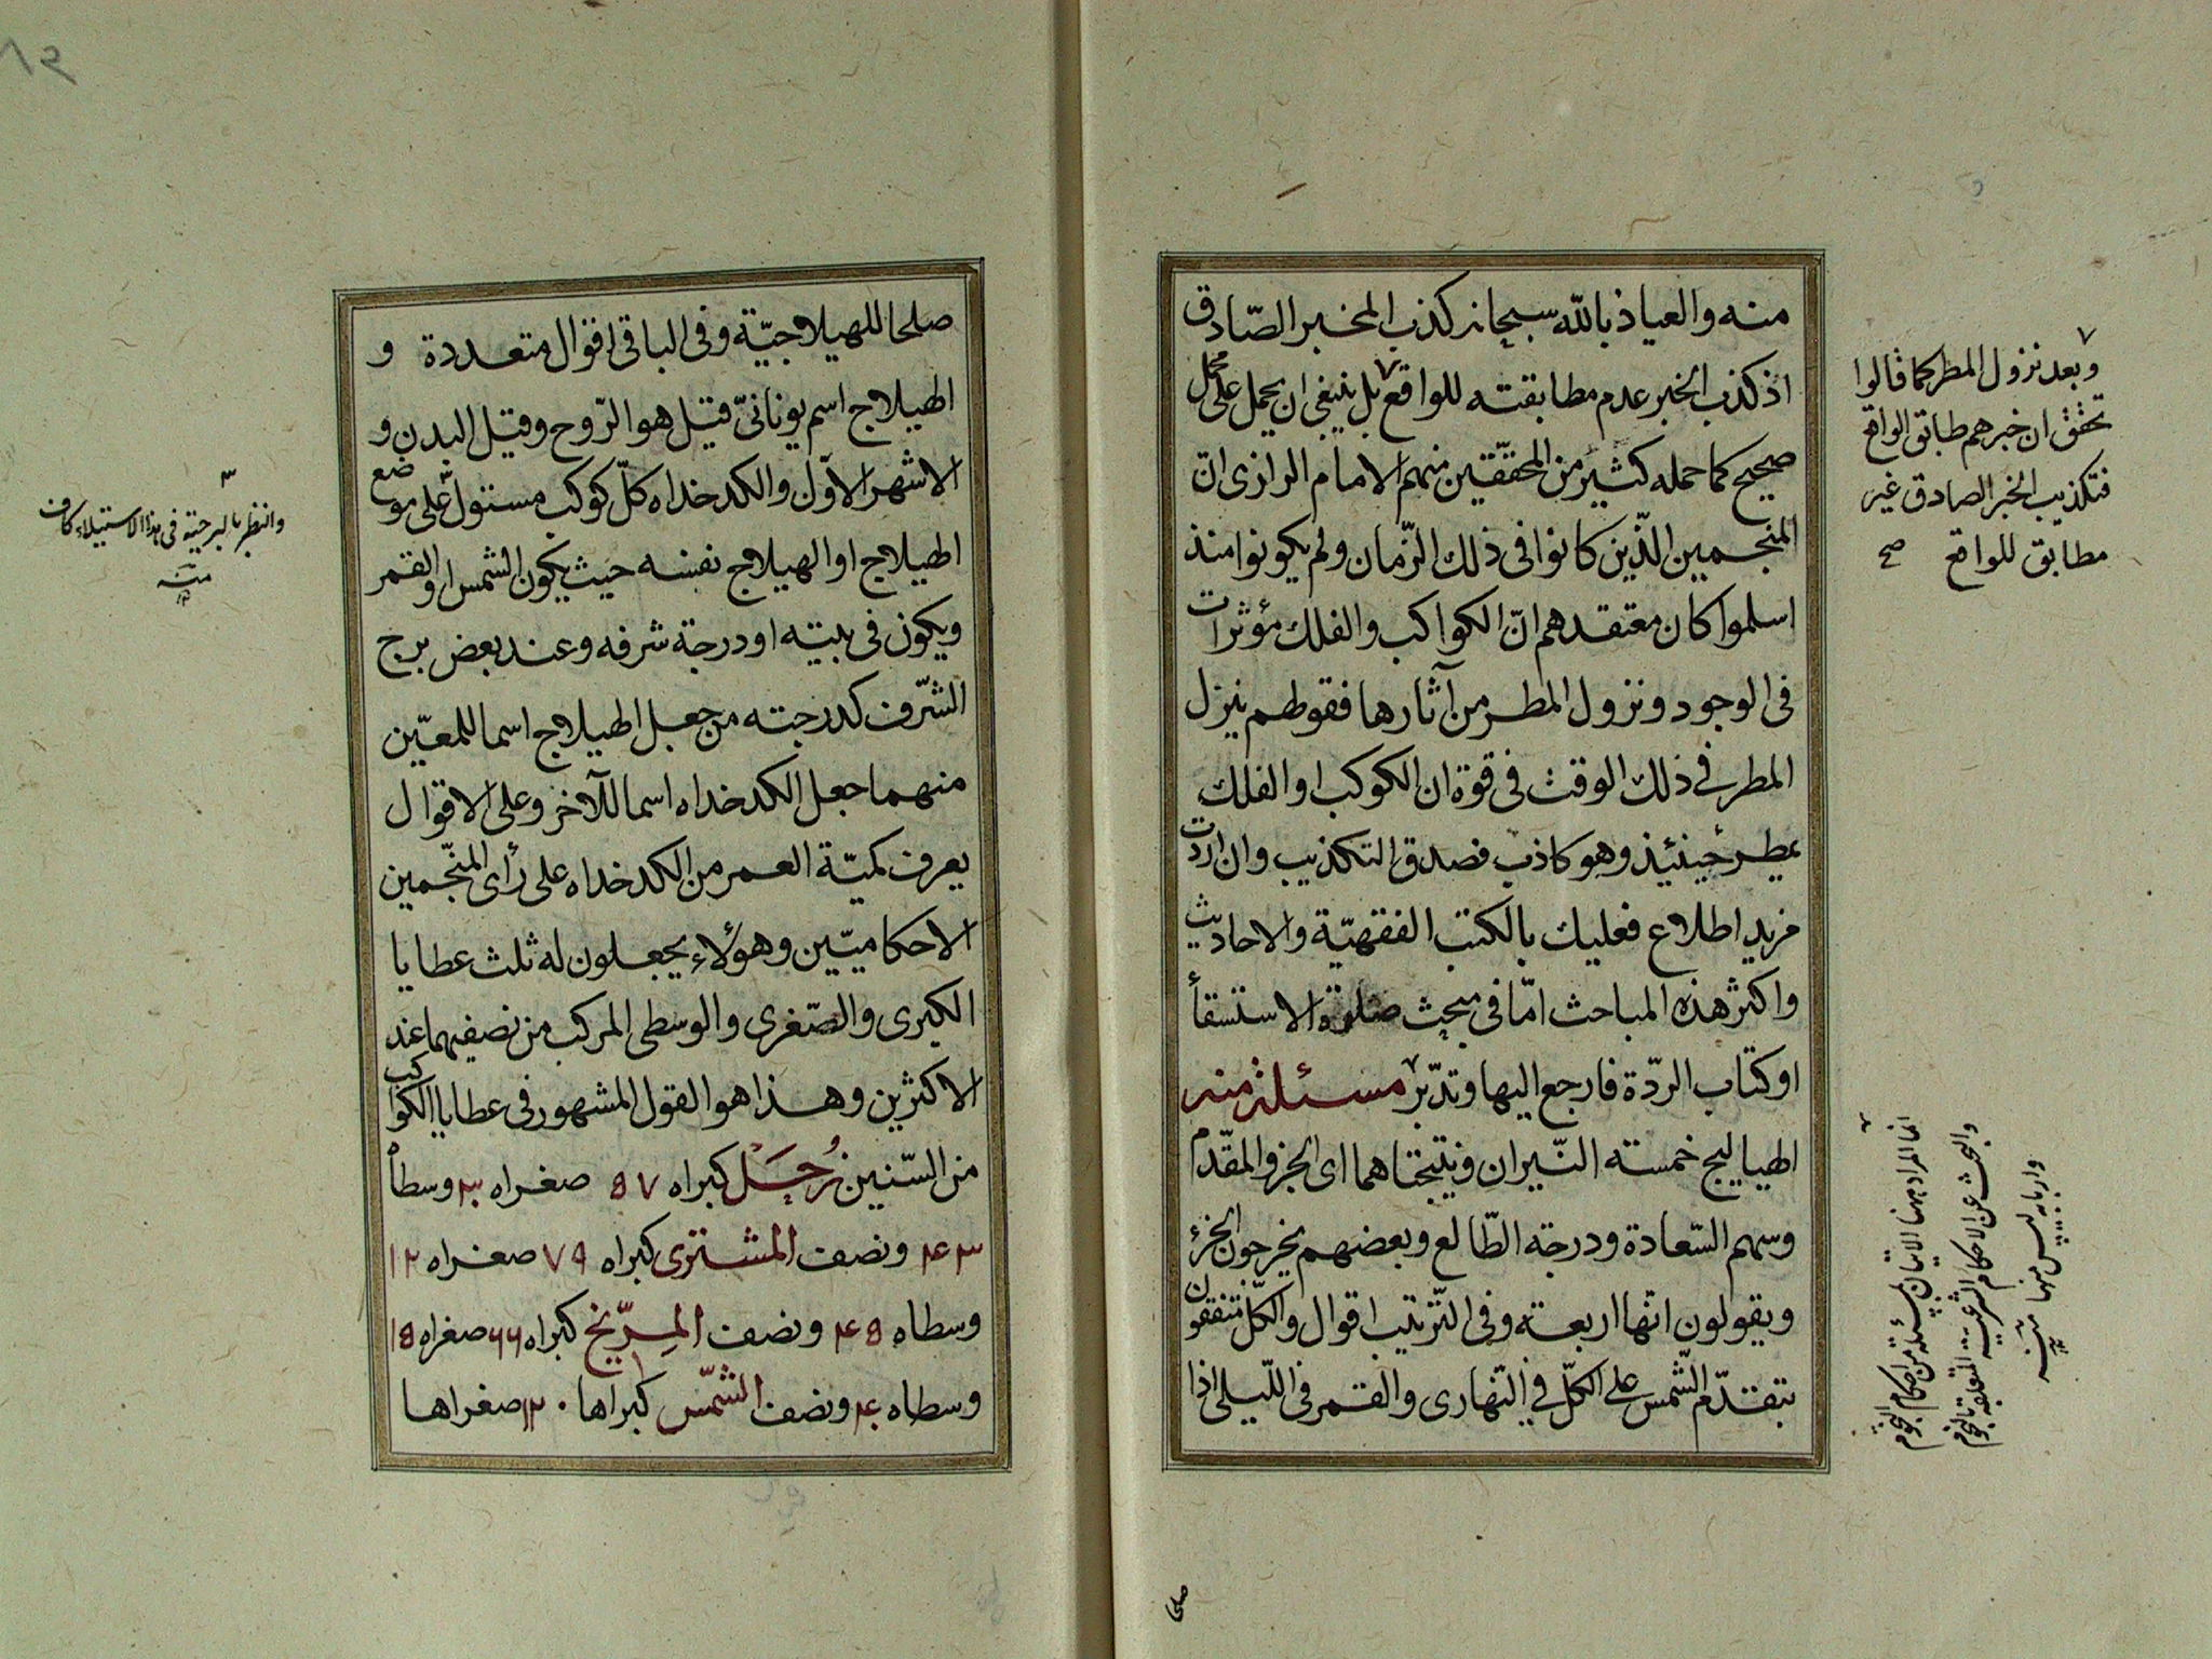 منه والعياذ بالله سبحانه كذب المخبر الصّادق
اذ كذب الخبر عدم مطابقته للواقع بل ينبغى ان يحمل على محمل
صحيح كما حمله كثير من المحقّقين منهم الامام الرازى انّ
المنجمين الذّين كانوا فى ذلك الزّمان ولم يكونوا منذ
اسلموا كان معتقدهم انّ الكواكب والفلك مؤثرات
فى الوجود ونزول المطر من آثارها فقولهم ينزل
المطر فى ذلك الوقت فى قوة ان الكوكب او الفلك
يمطر حينئذ وهو كاذب فصدق التكذيب وان اردت
مزيد اطلاع فعليك بالكتب الفقهيّة والاحاديث
واكثر هذه المباحث امّا فى مبحث صلوة الاستسقأ
او كتاب الردّة فارجع اليها وتدبّر مسئلة منه
الهياليج خمسته النّيران ونتيجتاهما اى الجزؤ المقدّم
وسهم السّعادة ودرجة الطّالع وبعضهم يخرجون الجزئ
ويقولون انّها اربعة وفى التّرتيب اقوال والكلّ متفقون
بتقدّم الشّمس على الكلّ فى النّهارى والقمر فى اللّيلى اذا
صلحا
وبعد نزول المطر كما قالوا
تحقق ان خبرهم طابق الواقع
فتكذيب الخبر الصادق غير
مطابق للواقع صح
انما المراد ههنا الاتيان بمسئلة من احكام النجوم
والبحث عن الاحكام الشرعية المتعلقة بالنجوم
منها منه
صلحا للهيلاجيّة وفى الباقى اقوال متعددة و
الهيلاج اسم يونانىّ قيل هو الرّوح وقيل البدن و
الاشهر الاوّل والكدخداه كلّ كوكب مستول على موضع
الهيلاج او الهيلاج نفسه حيث يكون الشمس او القمر
ويكون فى بيته او درجة شرفه وعند بعض برج
الشّرف كدرجته من جعل الهيلاج اسما للمعيّن
منهما جعل الكدخداه اسما للآخر وعلى الاقوال
يعرف كميّة العمر من الكدخداه على رأى المنجّمين
الاحكاميّين وهؤلاء يجعلون له ثلث عطايا
الكبرى والصّغرى والوسطى المركب من نصفيهما عند
الاكثرين وهذا هو القول المشهور فى عطايا الكواكب
من السّنين زُحَل كبراه ٥٧ صغراه ٣٠ وسطاه
٤٣ ونصف المشترى كبراه ٧٩ صغراه ١٢
وسطاه ٤٥ ونصف المرّيخ كبراه ٦٦ صغراه ١٥
وسطاه ٤٠ ونصف الشّمس كبراها ١٢٠ صغراها
والنظر بالبرجية فى هذا الاستيلاء كاف
منه